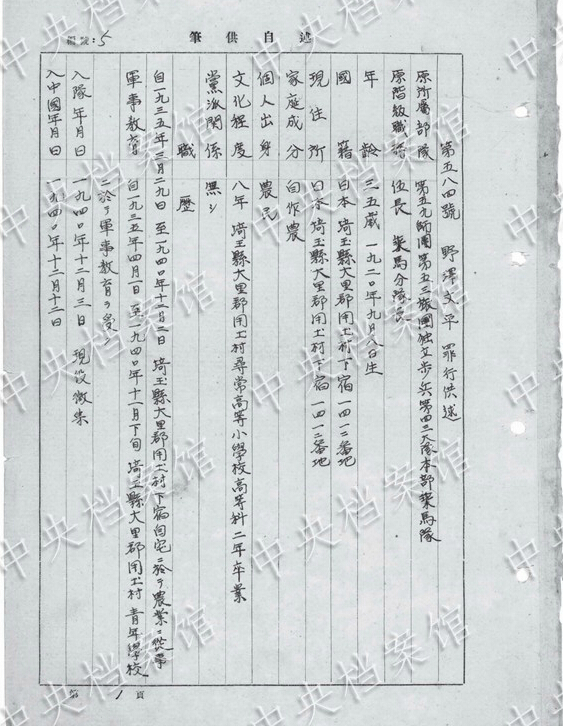 述自供筆
編號:5
第五八四號 野澤文平 罪行供述
原所屬部隊 第五九師團第五三旅團独立步兵第四三大隊本部乗馬隊
原階級職務 伍長 乗馬分隊長
年齡 三五歲 一九二〇年九月八日生
國籍 日本 埼玉縣大里郡用土村下宿一四一二番地
現住所 日本 埼玉縣大里郡用土村下宿一四一二番地
家庭成分 自作農
個人出身 農民
文化程度 八年 埼玉縣大里郡用土村尋常高等小學校高等科二年卒業
黨派關係 無シ
職歷
自一九三五年三月二九日 至一九四〇年十二月二日 埼玉縣大里郡用土村下宿自宅ニ於テ農業ニ從事
軍事教育 自一九三五年四月一日 至一九四〇年十一月下旬 埼玉縣大里郡用土村 青年學校
ニ於テ軍事教育ヲ受ク
入隊年月日 一九四〇年十二月三日 現役徵集
入中國年月日 一九四〇年十二月十三日
第 1 頁
中央档案馆